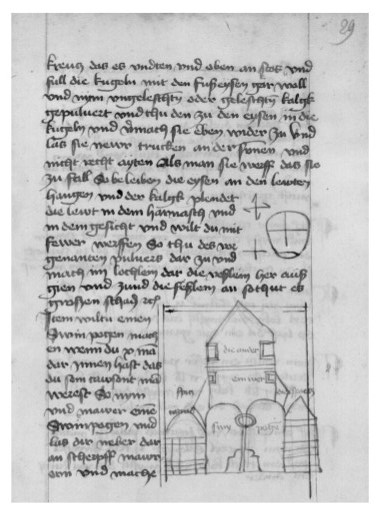 29
kreucz das es vndten vnd oben an stos vnd
full die kugeln mit den fußeysen gar woll
vnd nym vngeleschtn oder geleschtn kalgk
gepulvert vnd thu den zu den eysen in die
kugeln vnd mach sie eben wider zu vnd
las sie newr trucken an der sonen vnd
nicht recht Als man sie werff das sie
zu fall So beleiben die eysen an den lewten
hangen vnd der kalgk plendet
die lewt in dem harnasch vnd
in dem gesicht vnd wilt du mit
fewer werffen So thu des
genanten pulvers dar zu vnd
mach im lochlein dar die her auß
gien vnd zund die an so thut es
grossen schad
Item wiltu einen
Swin pogen mach
en wenn du
dar ynnen hast das
du
werest So nym
vnd mawer eine
Swinpogen vnd
las dar neber dar
an scherpff mawr
ern vnd mache
die ander
ein wer
swin pogen